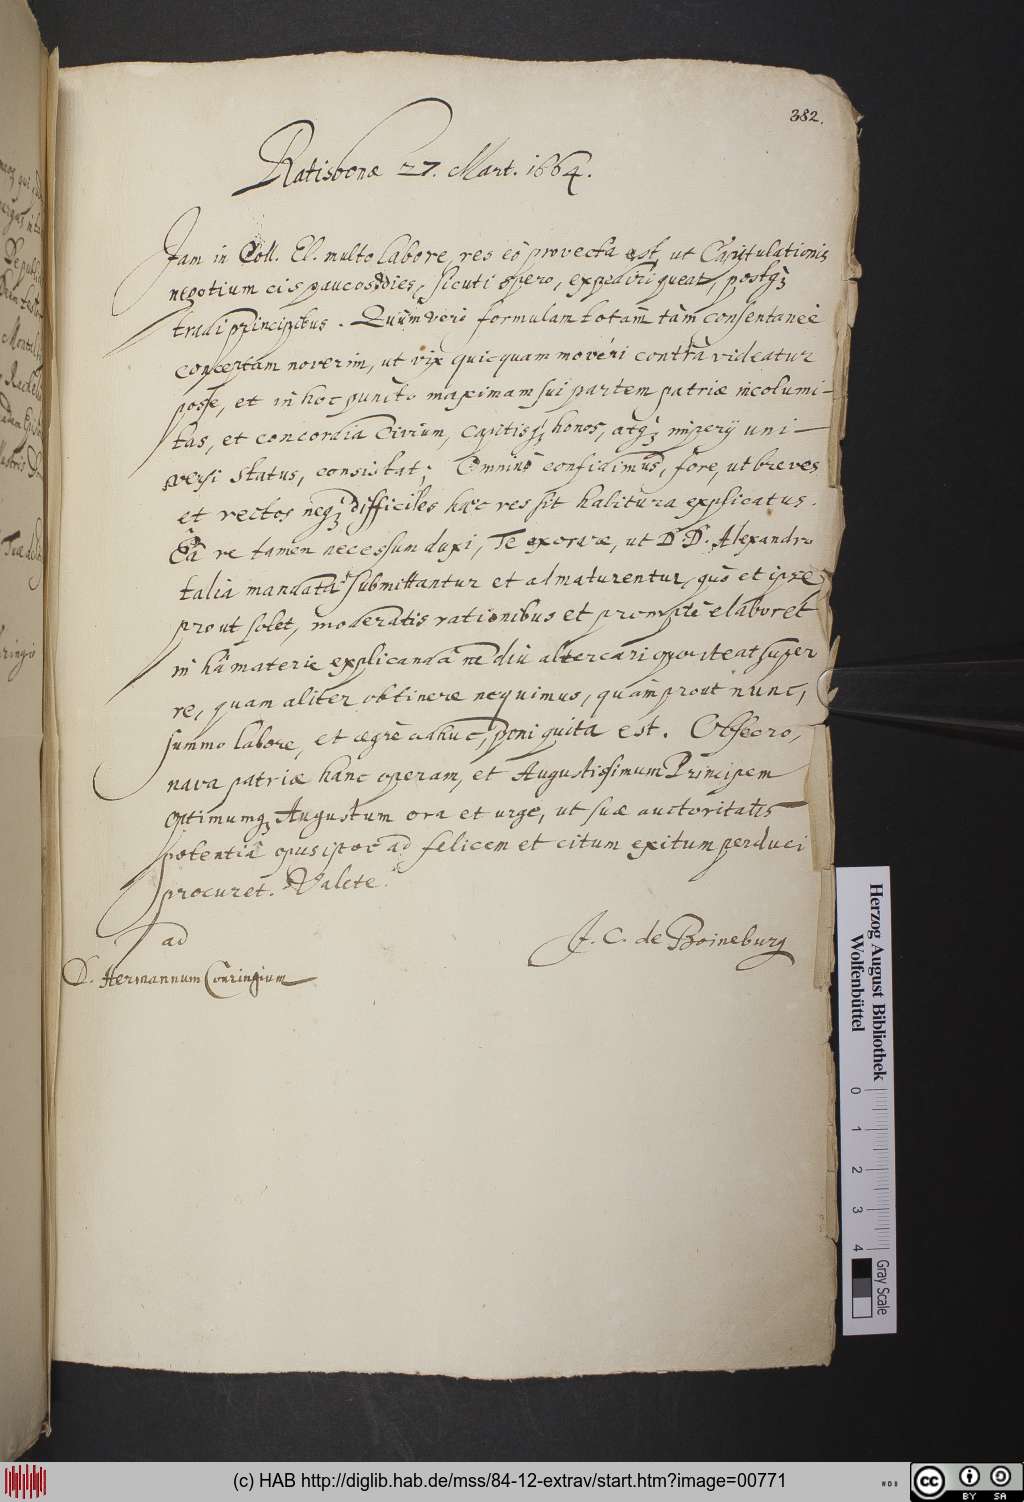 382.
Ratisbonæ 27. Mart. 1664.
Jam in Coll. El. multo labore, res eò provecta est, ut Capitulationis
negotium cis paucos dies, sicuti spero, expediri queat, postq;
tradi principibus. Quum verò formulam totam tàm consentaneè
conceptam noverim, ut vix quicquam moveri contrà videatur
posse, et in hoc puncto maximam sui partem patriæ incolumi-
tas, et concordia Civium, Capitisq; honos, atq; imperij uni-
versi status, consistat; Omninò confidimus, fore, ut breves
et rectos neq; difficiles hæc res sit habitura explicatus.
Eâ re tamen necessum duxi, Te exorare, ut D. D. Alexandro
talia mandata submittantur et admaturentur, quò et ipse
prout solet, moderatis rationibus et promptè elaboret
in hâ materie explicanda nè diù altercari oporteat super
re, quam aliter obtinere nequimus, quàm prout nunc,
summo labore, et ægrè adhuc, poni quita est. Obsecro,
nava patriæ hanc operam, et Augustissimum Principem
Optimumq; Augustum ora et urge, ut suæ auctoritatis
potentiâ opus istoc ad felicem et citum exitum perduci
procuret. Valete.
ad
J. C. de Boineburg
D. Hermannum Conringium
Herzog August Bibliothek
Wolfenbüttel
0 1 2 3 4
Gray Scale
(c) HAB http://diglib.hab.de/mss/84-12-extrav/start.htm?image=00771
cc BY SA